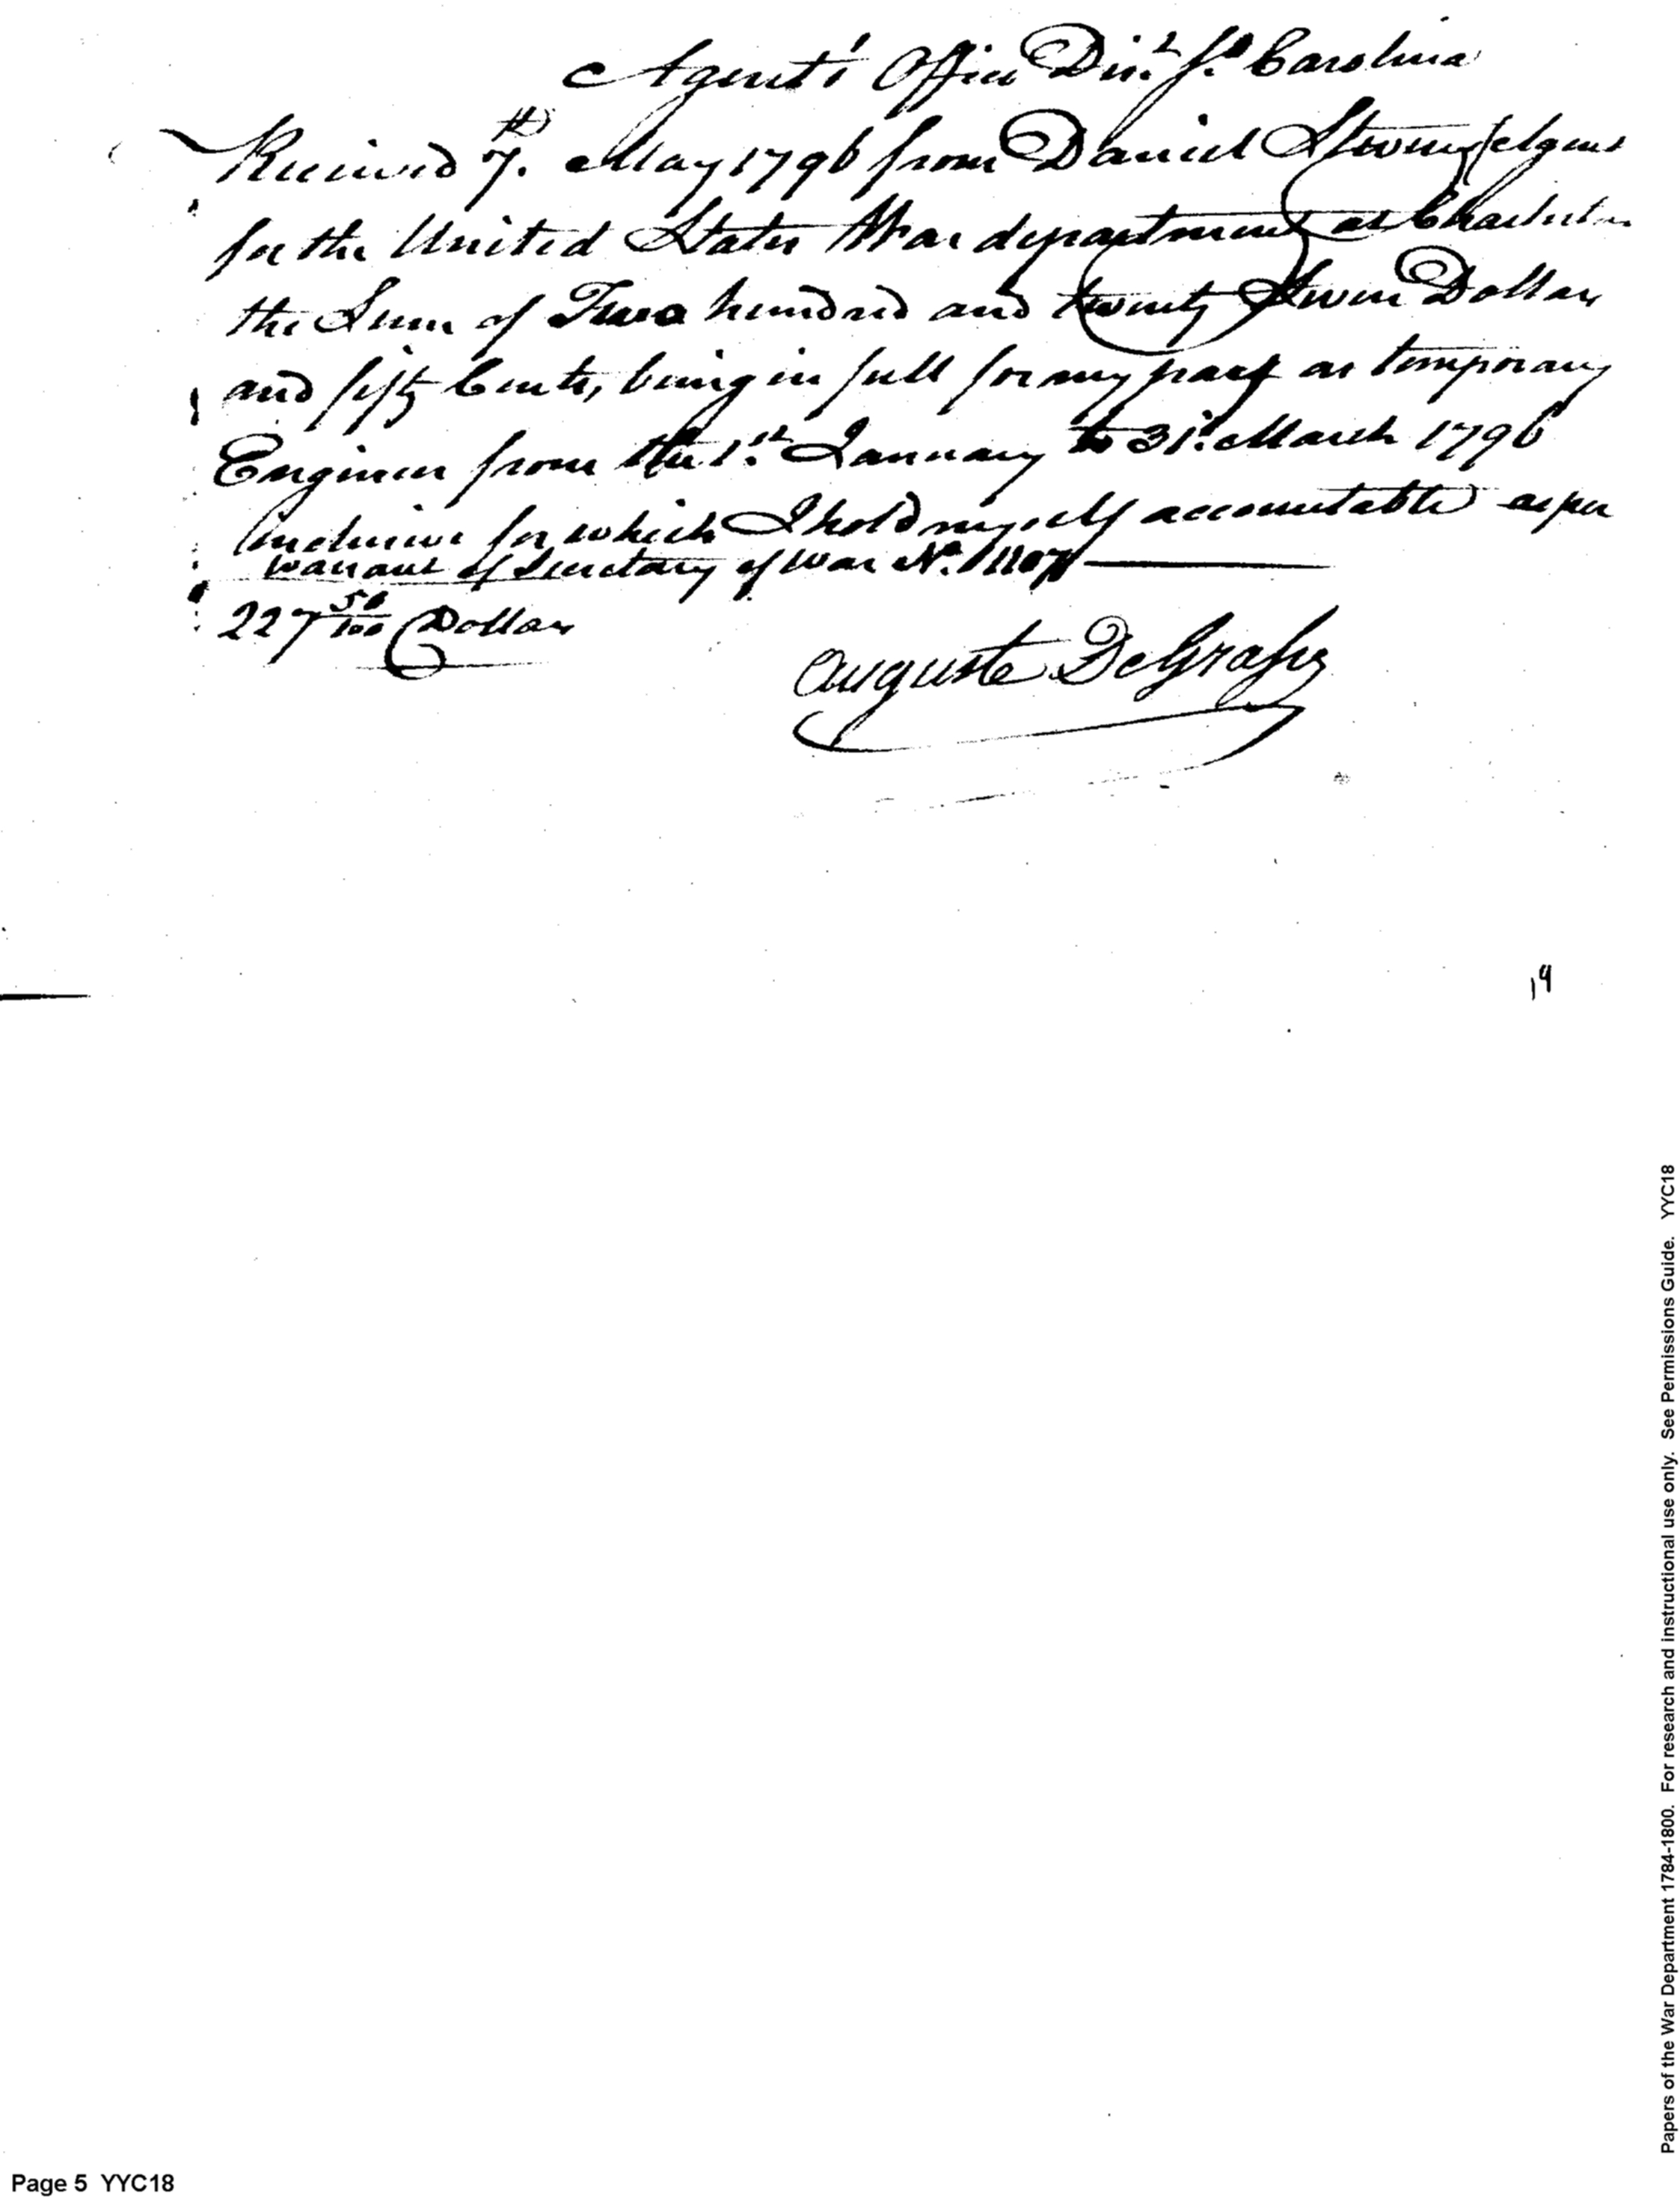 Agent's Office Dist. So. Carolina
Received 7th. May 1796 from Daniel Stevens Agent
for the United States War department at Charleston
the Sum of Two hundred and twenty Seven Dollars
and fifty Cents, being in full for my pay as temporary
Engineer from the 1st. January to 31st. March 1796
inclusive for which I hold myself accountable as per
warrant of Secretary of War No. 1107
227 50/100 Dollars
Auguste DeGrasse
19
Papers of the War Department 1784-1800. For research and instructional use only. See Permissions Guide. YYC18
Page 5 YYC18